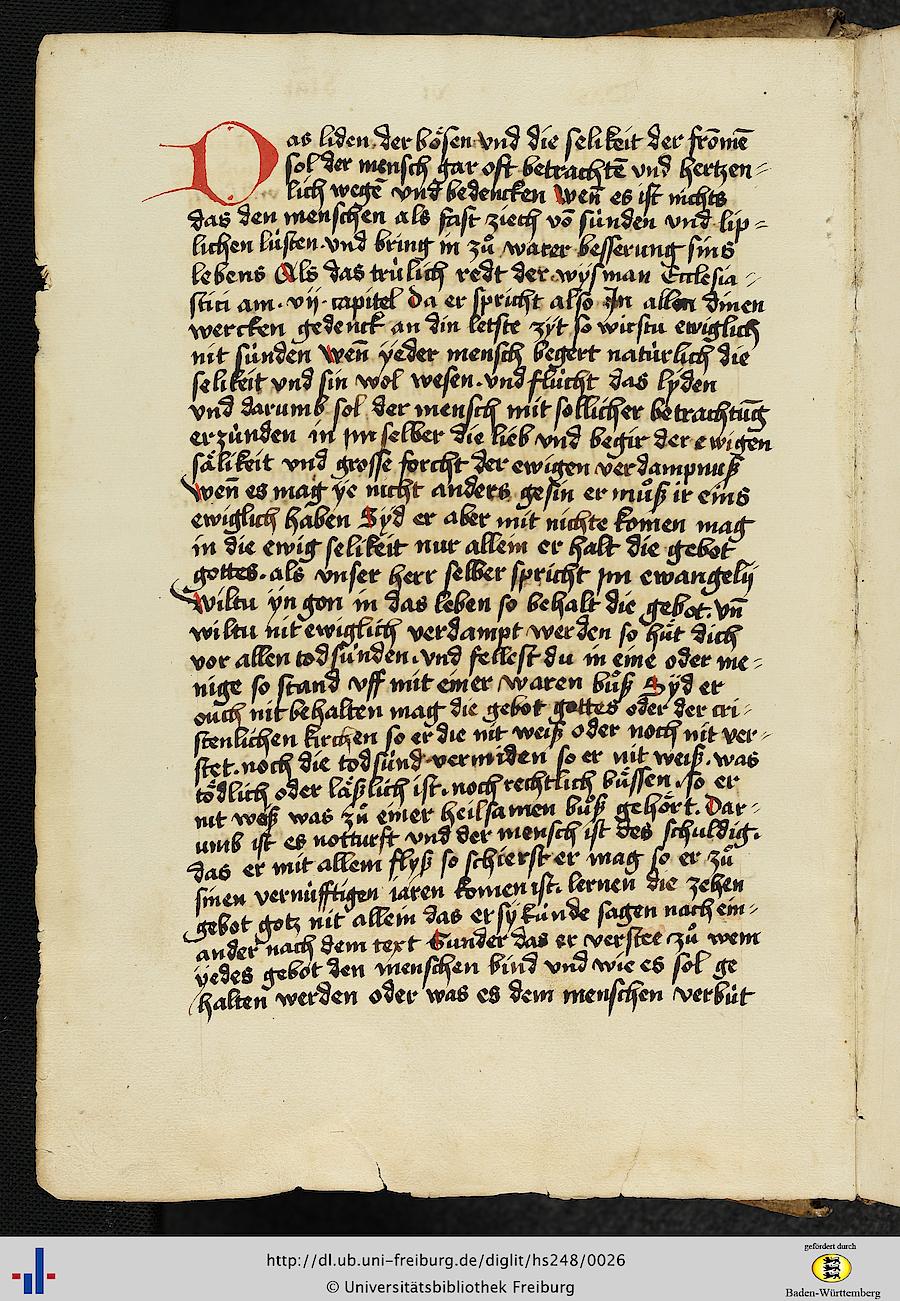 Das liden der bösen vnd die selikeit der frōmē
sol der mensch gar oft betrachtē vnd hertzen-
lich wegē vnd bedencken wen̄ es ist nichts
das den menschen als fast ziech vō sünden vnd lip-
lichen lüsten. vnd bring in zů warer besserung sins
lebens Als das trülich redt der wys man Ecclesia-
stici am. vij. capitel Da er spricht also In allen dinen
wercken gedenck an din letste zyt so wirstu ewiglich
nit sünden wen̄ ÿeder mensch begert natürlich die
selikeit vnd sin wol wesen. vnd flücht das lyden
vnd darumb sol der mensch mit sollicher betrachtūg
erzünden in im selber die lieb vnd begir der ewigen
sälikeit vnd grosse forcht der ewigen verdampnuß
wen̄ es mag ÿe nicht anders gesin er můß ir eins
ewiglich haben Sÿd er aber mit nichte komen mag
in die ewig selikeit nur allein er halt die gebot
gottes. als vnser herr selber spricht im ewangelÿ
wiltu ÿn gon in das leben so behalt die gebot. vn̄
wiltu nit ewiglich verdampt werden so hüt dich
vor allen todsünden. vnd fellest du in eine oder me-
nige so stand vff mit einer waren bůß Sÿd er
ouch nit behalten mag die gebot gottes oder der cri-
stenlichen kirchen so er die nit weiß oder noch nit ver-
stet. noch die todsünd vermiden so er nit weiß. was
tödlich oder läßlich ist. noch rechtlich büssen. so er
nit weiß was zů einer heilsamen bůß gehört. Dar-
umb ist es notturft vnd der mensch ist des schuldig.
das er mit allem flyß so schierst er mag so er zů
sinen vernüfftigen iaren komen ist. lernen die zehen
gebot gotz nit allein das er sÿ künde sagen nach ein-
ander nach dem text Sunder das er verstee zů wem
ÿedes gebot den menschen bind vnd wie es sol ge
halten werden oder was es dem menschen verbüt
http://dl.ub.uni-freiburg.de/diglit/hs248/0026
© Universitätsbibliothek Freiburg
gefördert durch
Baden-Württemberg